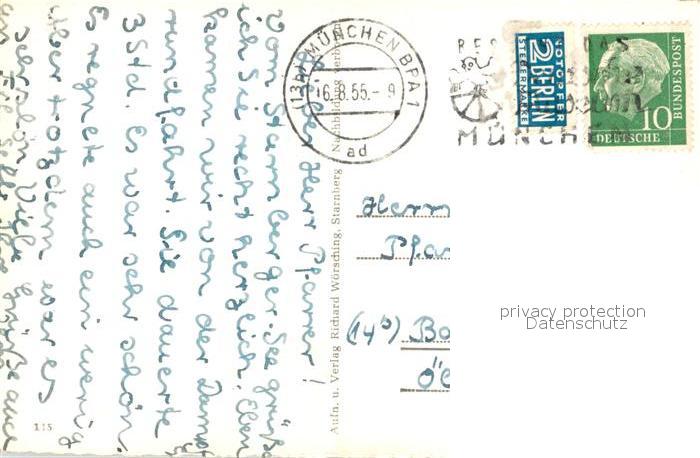 Lieber Herr Pfarrer!
Vom Starnberger-See grüße
ich Sie recht herzlich. Eben
kamen wir von der Dampf
rundfahrt. Sie dauerte
3 Std. Es war sehr schön.
Es regnete auch ein wenig
aber trotzdem war es
sehr schön. Viele Grüße auch
Aufn. u. Verlag Richard Wörsching, Starnberg
115
(13b) MÜNCHEN BPA 1
16.8.55.-9
ad
MÜNCHEN
NOTOPFER
2 BERLIN
STEUERMARKE
10
DEUTSCHE
BUNDESPOST
Herrn
Pfar
(14b) Bo
privacy protection
Datenschutz